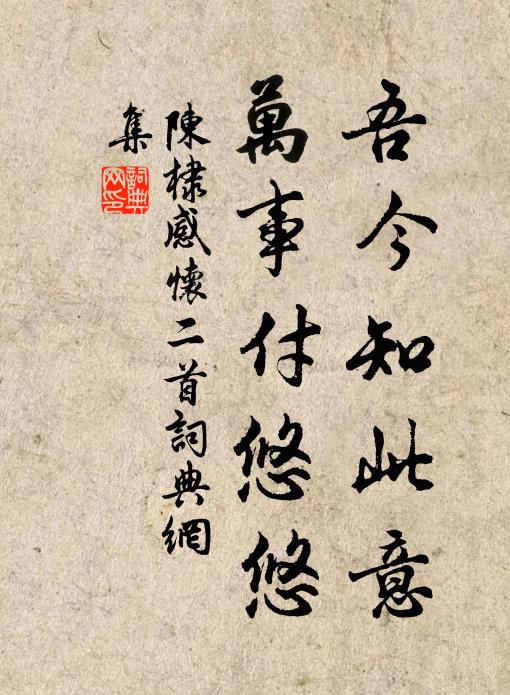 吾今知此意
萬事付悠悠
陳棣感懷二首詞典網
集
詞典網印